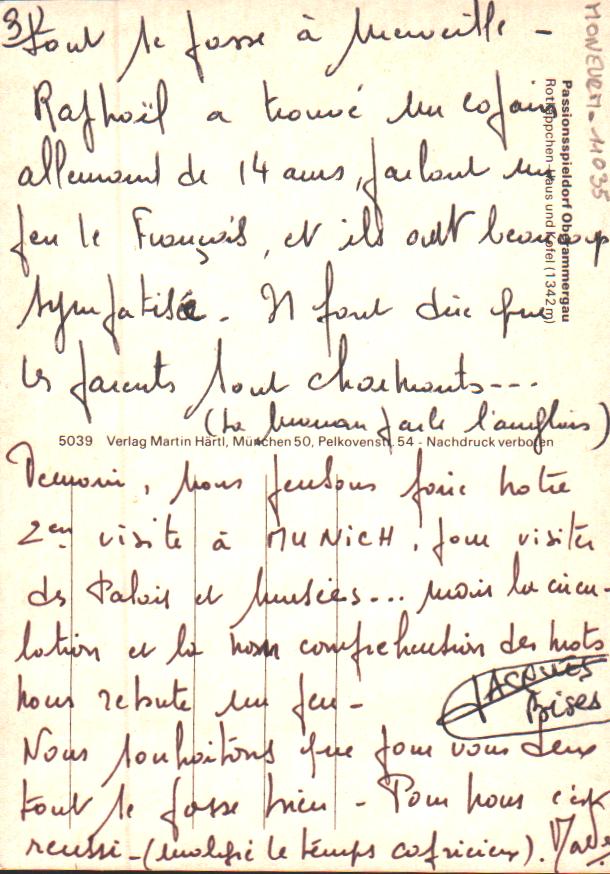 3)/ Tout se passe à merveille -
Raphaël a trouvé un copain
allemand de 14 ans, parlant un
peu le Français, et ils ont beaucoup
sympatisé. Il faut dire que
les parents sont charmants---
(La maman parle l'anglais)
Demain, nous pensons faire notre
2en visite à MUNICH, pour visiter
des Palais et Musées... mais la circu-
lation et la non compréhension des mots
nous rebute un peu -
JACQUES
Bises
Nous souhaitons que pour vous deux
tout se passe bien - Pour nous c'est
reussi - (malgré le temps capricieux).
MONEUEM - 11035
Passionsspieldorf Oberammergau
Rotkäppchen-Haus und Kofel (1342 m)
5039 Verlag Martin Härtl, München 50, Pelkovenstr. 54 - Nachdruck verboten